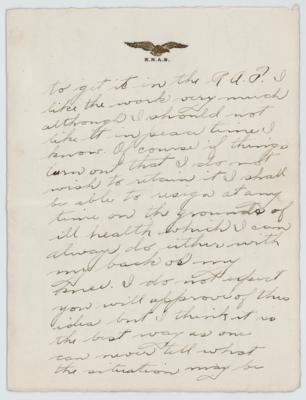 N.N.A.S.
to get it in the R.A.F. I
like the work very much
although I should not
like it in peace time I
know. Of course if things
turn out that I do not
wish to retain it I shall
be able to resign at any
time on the grounds of
ill health which I can
always do, either with
my back or my
knee. I do not expect
you will approve of this
idea but I think it is
the best way as one
can never tell what
the situation may be